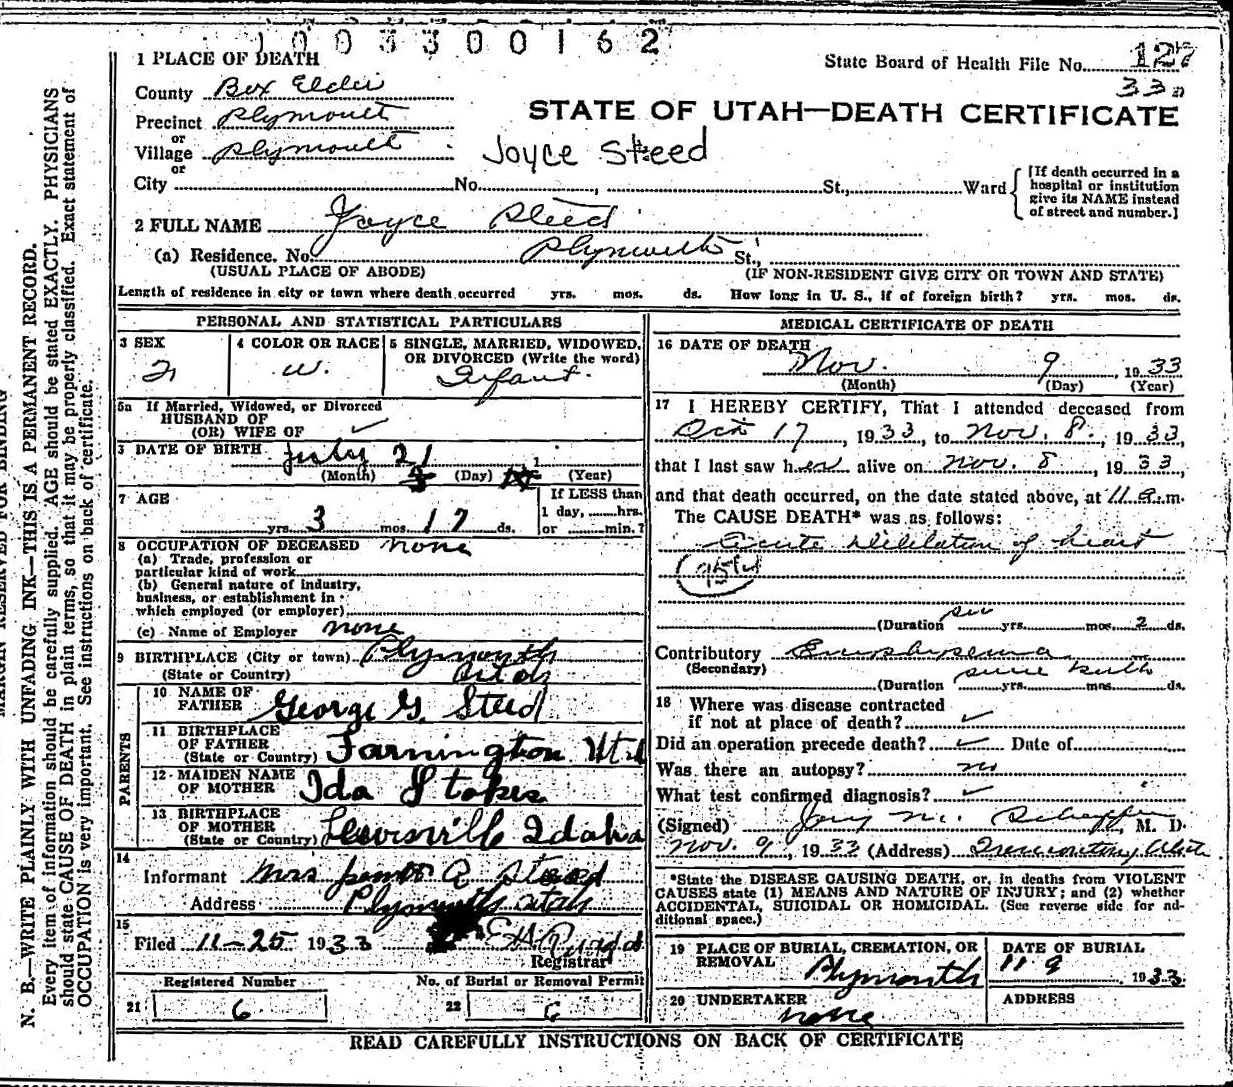 1 0 0 3 3 0 0 1 6 2
1 PLACE OF DEATH
State Board of Health File No. 127
33
County Box Elder
STATE OF UTAH—DEATH CERTIFICATE
Precinct Plymouth
or
Village Plymouth
Joyce Steed
or
City No. , St., Ward
[If death occurred in a
hospital or institution
give its NAME instead
of street and number.]
2 FULL NAME Joyce Steed
(a) Residence. No. Plymouth St.,
(USUAL PLACE OF ABODE) (IF NON-RESIDENT GIVE CITY OR TOWN AND STATE)
Length of residence in city or town where death occurred yrs. mos. ds. How long in U. S., if of foreign birth? yrs. mos. ds.
PERSONAL AND STATISTICAL PARTICULARS
3 SEX
F
4 COLOR OR RACE
w.
5 SINGLE, MARRIED, WIDOWED,
OR DIVORCED (Write the word)
Infant.
5a If Married, Widowed, or Divorced
HUSBAND OF
(OR) WIFE OF ✓
DATE OF BIRTH July 21 1
(Month) (Day) (Year)
7 AGE
yrs. 3 mos. 17 ds.
If LESS than
1 day, hrs.
or min.?
8 OCCUPATION OF DECEASED none
(a) Trade, profession or
particular kind of work
(b) General nature of industry,
business, or establishment in
which employed (or employer)
(c) Name of Employer none
9 BIRTHPLACE (City or town) Plymouth
(State or Country) Utah
PARENTS
10 NAME OF
FATHER George G. Steed
11 BIRTHPLACE
OF FATHER
(State or Country) Farmington Utah
12 MAIDEN NAME
OF MOTHER Ida Stokes
13 BIRTHPLACE
OF MOTHER
(State or Country) Lewisville Idaho
14
Informant Mrs R Steed
Address Plymouth Utah
15
Filed 11-25 1933
Registrar
Registered Number
21 6
No. of Burial or Removal Permit
22 6
MEDICAL CERTIFICATE OF DEATH
16 DATE OF DEATH
Nov. 9 , 1933
(Month) (Day) (Year)
17 I HEREBY CERTIFY, That I attended deceased from
Oct 17, 1933, to Nov. 8., 1933,
that I last saw her alive on Nov. 8, 1933,
and that death occurred, on the date stated above, at 11 a.m.
The CAUSE DEATH* was as follows:
Acute Dilitation of heart
(Duration yrs. mos. 2 ds.
Contributory Emphysema
(Secondary)
(Duration since birth yrs. mos. ds.
18 Where was disease contracted
if not at place of death? ✓
Did an operation precede death? ✓ Date of
Was there an autopsy? no
What test confirmed diagnosis? ✓
(Signed) , M. D.
Nov. 9, 1933 (Address) Tremonton, Utah
*State the DISEASE CAUSING DEATH, or, in deaths from VIOLENT
CAUSES state (1) MEANS AND NATURE OF INJURY; and (2) whether
ACCIDENTAL, SUICIDAL OR HOMICIDAL. (See reverse side for ad-
ditional space.)
19 PLACE OF BURIAL, CREMATION, OR
REMOVAL Plymouth
DATE OF BURIAL
11 9 1933
20 UNDERTAKER
none
ADDRESS
READ CAREFULLY INSTRUCTIONS ON BACK OF CERTIFICATE
MARGIN RESERVED FOR BINDING
N. B.—WRITE PLAINLY WITH UNFADING INK—THIS IS A PERMANENT RECORD.
Every item of information should be carefully supplied. AGE should be stated EXACTLY. PHYSICIANS
should state CAUSE OF DEATH in plain terms, so that it may be properly classified. Exact statement of
OCCUPATION is very important. See instructions on back of certificate.